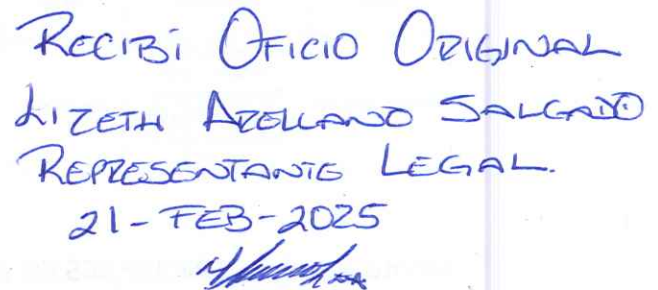 RECIBí OFICIO ORIGINAL
LIZETH ARELLANO SALGADO
REPRESENTANTE LEGAL.
21-FEB-2025